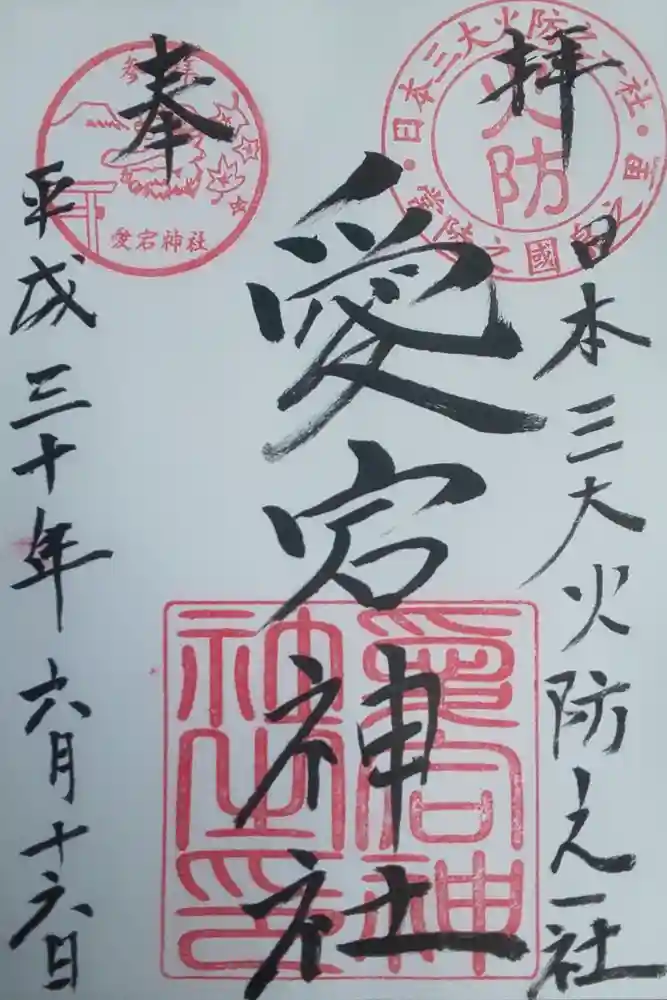 奉拝
日本三大火防之一社
愛宕神社
平成三十年六月十六日
日本三大火防之一社
火防
常陸之國
愛宕神社
愛宕神社之印